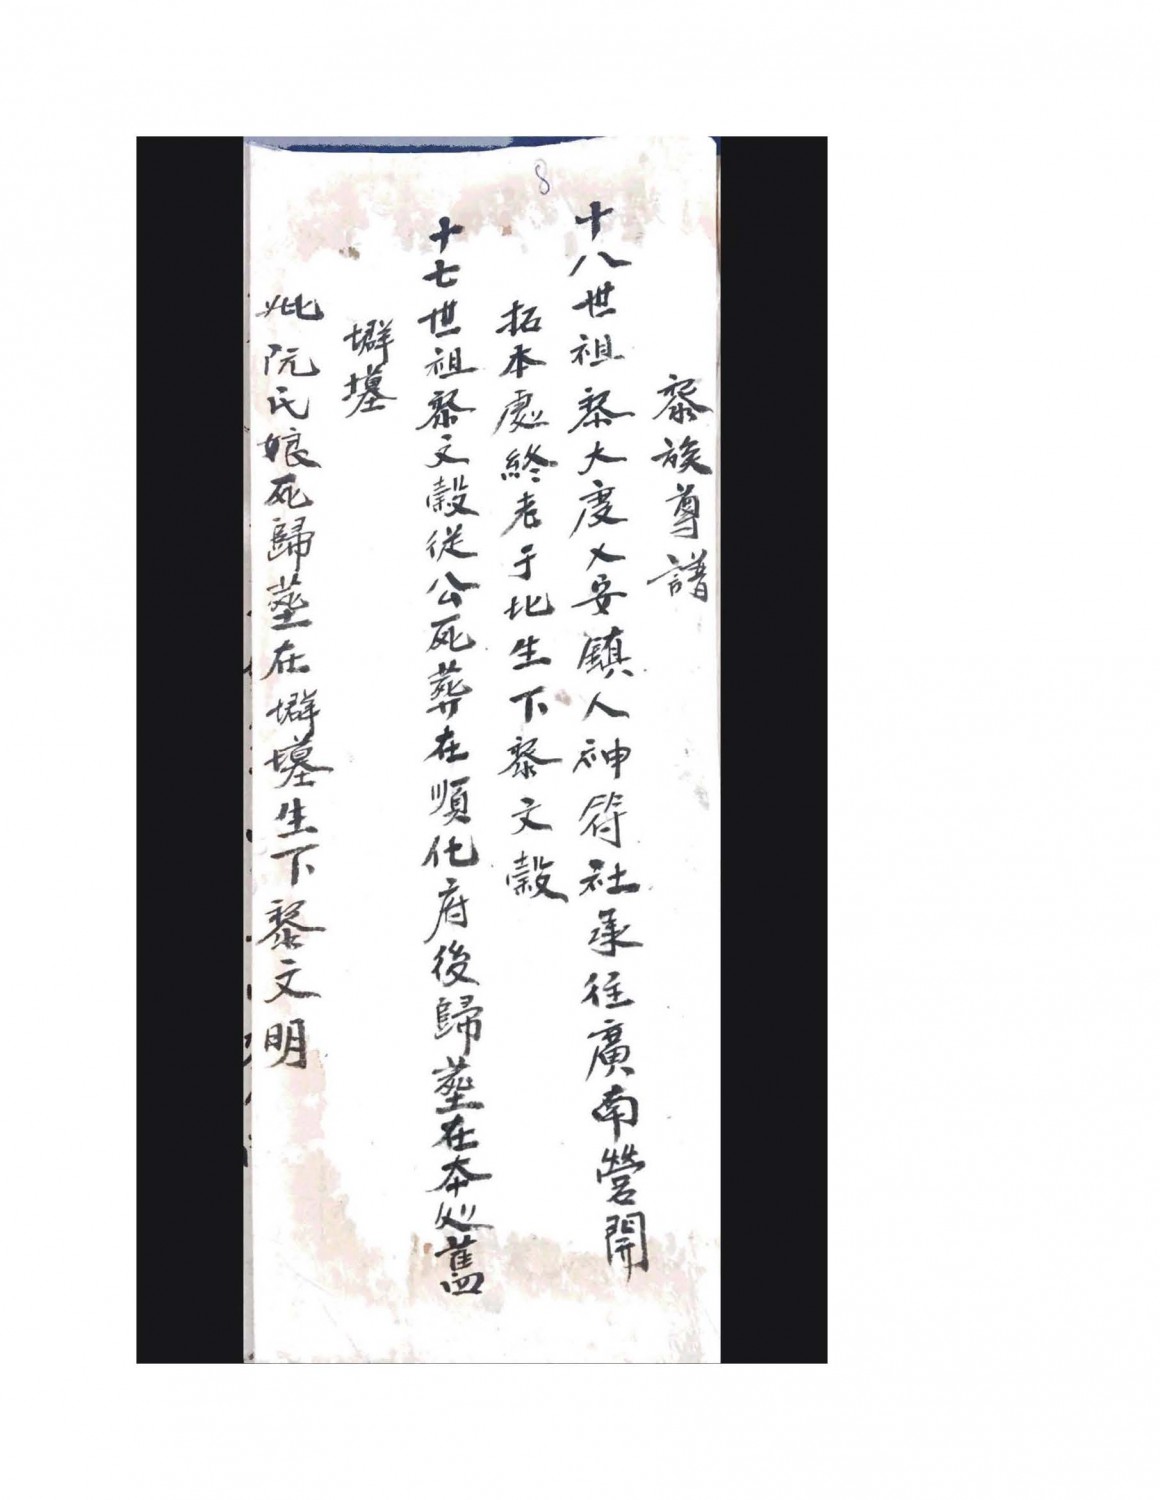 8
黎族尊譜
十八世祖黎大度乂安鎮人神符社承往廣南營開
拓本處終老于此生下黎文穀
十七世祖黎文穀從公死葬在順化府後歸塟在本処舊
墳墓
妣阮氏娘死歸塟在墳墓生下黎文明